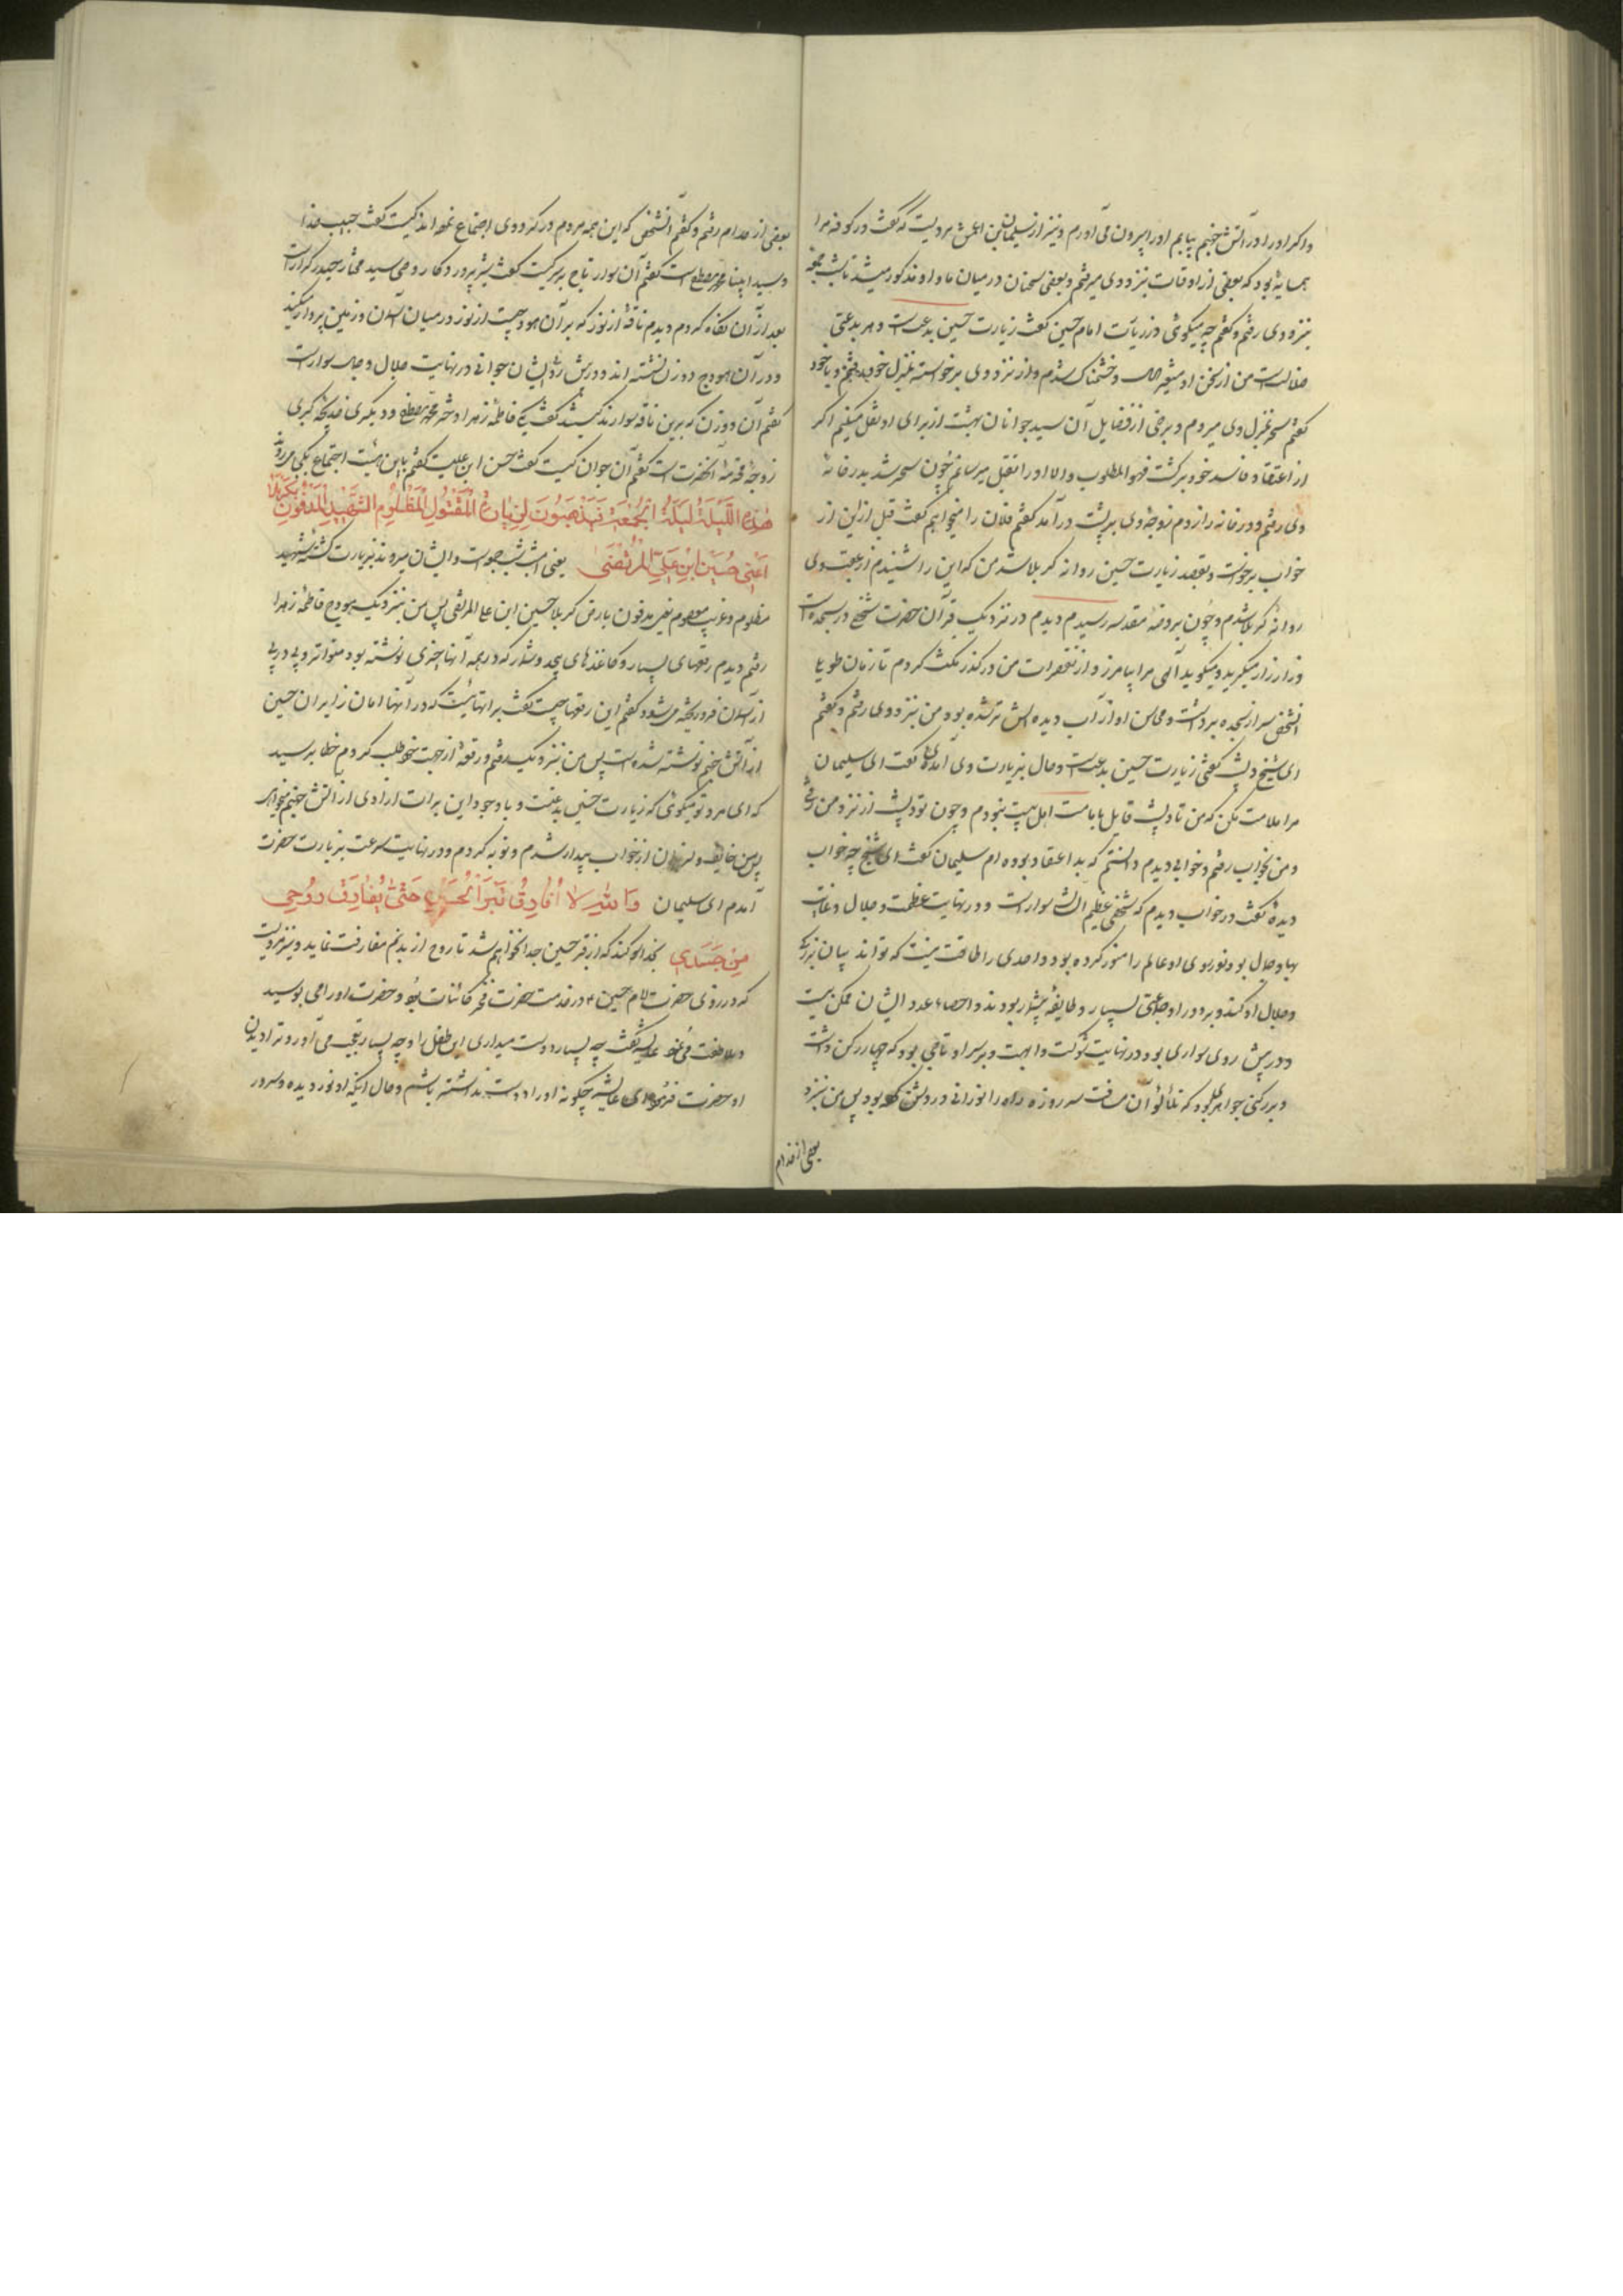 واکر اورا در آتش جهنم بیابم اورا بیرون می آورم ونیز از سلیمان بن اعمش مرویست که گفت در کوفه مرا
همسایهٔ بود که بعضی از اوقات بنزد وی میرفتم و بعضی سخنان در میان ما و او مذکور میشد تا شب جمعه
بنزد وی رفتم و گفتم چه میگوئی در زیارت امام حسین گفت زیارت حسین بدعت است و هر بدعتی
ضلالت است من از سخن او متغیر حال و خشمناک شدم و از نزد وی برخواسته بمنزل خود رفتم و با خود
گفتم سحر بمنزل وی میروم و برخی از فضایل آن سید جوانان بهشت از برای او نقل میکنم اگر
از اعتقاد فاسد خود برگشت فهو المطلوب والا اورا بقتل میرسانم چون سحر شد بدر خانهٔ
وی رفتم و در خانه را زدم زوجهٔ وی به پشت در آمد گفتم فلان را میخواهم گفت قبل ازین از
خواب برخواست و بقصد زیارت حسین روانه کربلا شد من که این را شنیدم از عقب وی
روانه کربلا شدم و چون بروضه مقدسه رسیدم دیدم در نزدیک قبر آن حضرت شیخ در سجده است
و زار زار میگرید و میگوید الهی مرا بیامرز و از تقصیرات من درگذر مکث کردم تا زمان طویل
آنشخص سر از سجده برداشت و محاسن او از آب دیده اش تر شده بود من بنزد وی رفتم و گفتم
ای شیخ دیشب گفتی زیارت حسین بدعت است و حال بزیارت وی آمدهٔ گفت ای سلیمان
مرا ملامت مکن که من تا دیشب قایل بامامت اهل بیت نبودم و چون تو دیشب از نزد من رفتی
و من بخواب رفتم و خوابی دیدم دانستم که بد اعتقاد بوده ام سلیمان گفت ای شیخ چه خواب
دیدهٔ گفت در خواب دیدم که شخصی عظیم الشان سوار است و در نهایت عظمت و جلال و غایت
بها و جمال بود و نور روی او عالم را منور کرده بود و احدی را طاقت نیست که تواند بیان بزرگی
و جلال او کند و بر دور او جماعتی بسیار و طایفهٔ بیشمار بودند و احصاء عدد ایشان ممکن نیست
و در پیش روی سواری بود در نهایت شوکت و ابهت و بر سر او تاجی بود که چهار رکن داشت
و بر رکنی جواهری بود که تلألؤ آن مسافت سه روزه راه را نورانی و روشن کرده بود پس من بنزد
بعضی از خدام
بعضی از خدام رفتم و گفتم آنشخص که این همه مردم در گرد وی اجتماع نموده اند کیست گفت حبیب خدا
و سید انبیا محمد مصطفی است گفتم آن سوار تاج بر سر کیست گفت شیر پروردگار و وصی سید مختار حیدر کرار است
بعد از آن نگاه کردم دیدم ناقهٔ از نور که بر آن هودجیست از نور در میان آسمان و زمین پرواز میکند
و در آن هودج دو زن نشسته اند و در پیش روی ایشان جوانی در نهایت جلال و جمال سوار است
گفتم آن دو زن که برین ناقه سوارند کیستند گفت یکی فاطمه زهرا دختر محمد مصطفی و دیگری خدیجه کبری
زوجه محترمه آنحضرت است گفتم آن جوان کیست گفت حسن ابن علیست گفتم باین هیئت اجتماع بکجا میروند گفت
هٰذِهِ اللَّيْلَةُ لَيْلَةُ الْجُمُعَةِ يَذْهَبُونَ لِزِيَارَةِ الْمَقْتُولِ الْمَظْلُومِ الشَّهِيدِ الْمَدْفُونِ بِكَرْبَلَا
اَعْنِي حُسَيْنَ ابْنِ عَلِيٍّ الْمُرْتَضَى یعنی امشب شب جمعه است و ایشان میروند بزیارت کشته شهید
مظلوم و غریب معصوم یعنی مدفون بارض کربلا حسین ابن علی المرتضی پس من بنزدیک هودج فاطمه زهرا
رفتم دیدم رقعهای بسیار و کاغذهای بیحد و شمار که در همه آنها چیزی نوشته بود متواتر و پی در پی
از آسمان فرو ریخته می شود گفتم این رقعها چیست گفت براتهائیست که در آنها امان زایران حسین
از آتش جهنم نوشته شده است پس من بنزدیک رفتم و رقعهٔ از جهت خود طلب کردم خطاب رسید
که ای مرد تو میگوئی که زیارت حسین بدعتست و با وجود این برات آزادی از آتش جهنم میخواهی
پس من خایف و لرزان از خواب بیدار شدم و توبه کردم و در نهایت سرعت بزیارت حضرت
آمدم ای سلیمان وَاللّٰهِ لَا اُفَارِقُ قَبْرَ الْحُسَيْنِ حَتّٰى يُفَارِقَ رُوحِي
مِنْ جَسَدِي بخدا سوکند که از قبر حسین جدا نخواهم شد تا روح از بدنم مفارقت نماید و نیز مرویست
که در روزی حضرت امام حسین ع در خدمت حضرت فخر کائنات بود و حضرت اورا می بوسید
و ملاطفت می نمود عایشه گفت چه بسیار دوست میداری این طفل را و چه بسیار بتعجب می آورد ترا دیدن
او حضرت فرمود ای عایشه چگونه اورا دوست نداشته باشم و حال آنکه او نور دیده و سرور